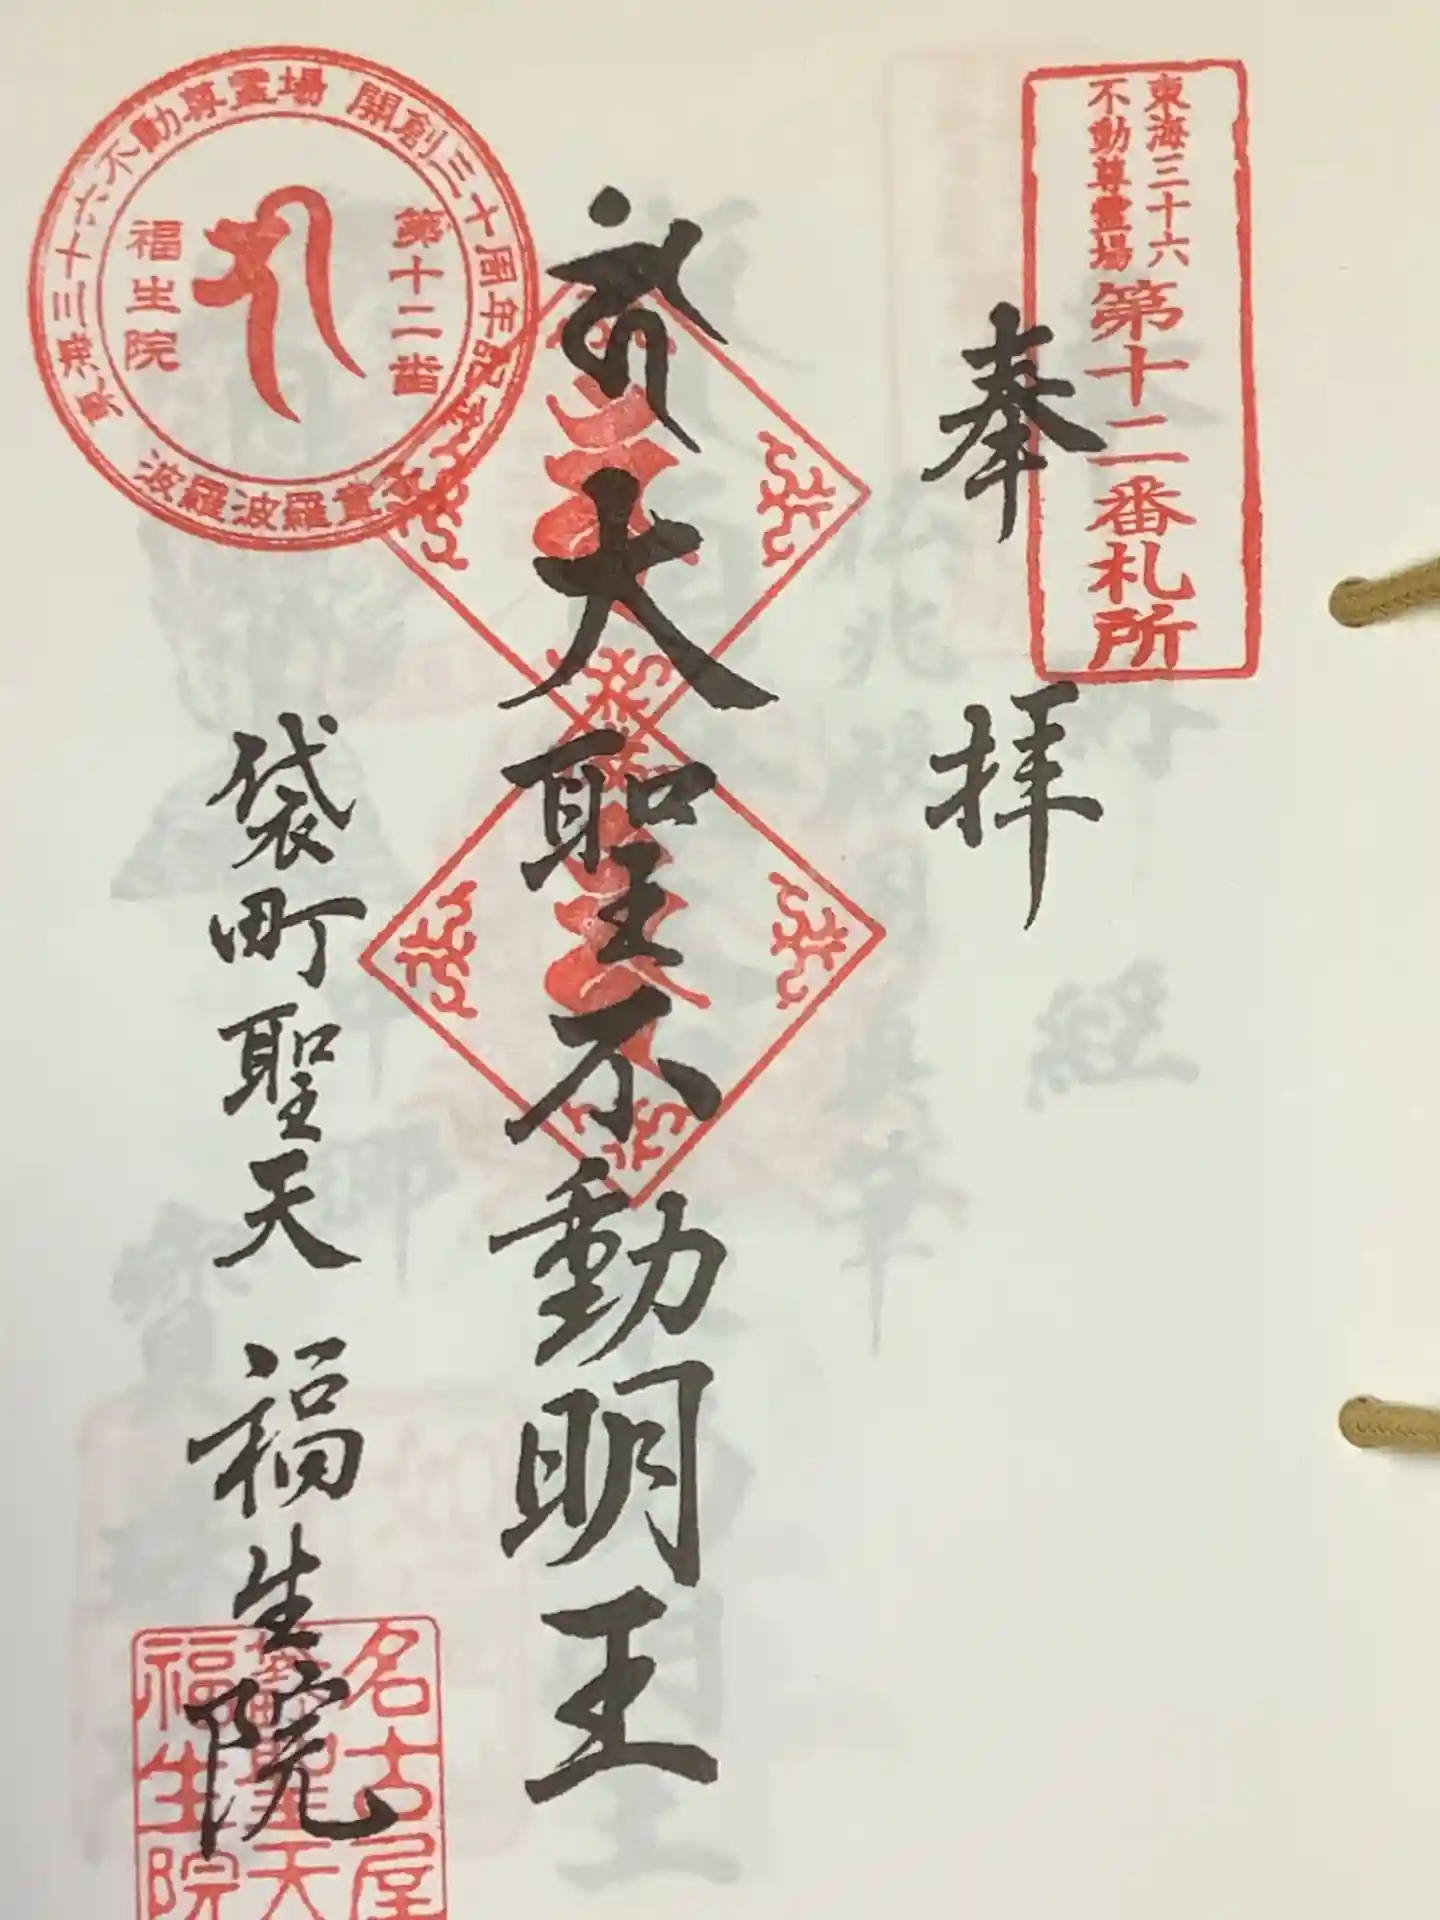 東海三十六
不動尊霊場
第十二番札所
奉拝
大聖不動明王
東海三十六不動尊霊場 開創三十周年記念
波羅波羅童子
第十二番
福生院
袋町聖天 福生院
名古屋
袋町聖天
福生院